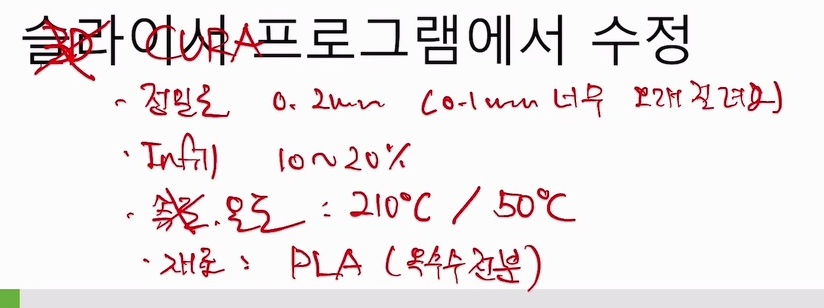 슬라이서 프로그램에서 수정
CURA
· 정밀도 0.2mm (0.1mm 너무 오래 걸려요)
· Infill 10~20%
· 온도 : 210°C / 50°C
· 재료 : PLA (옥수수 전분)